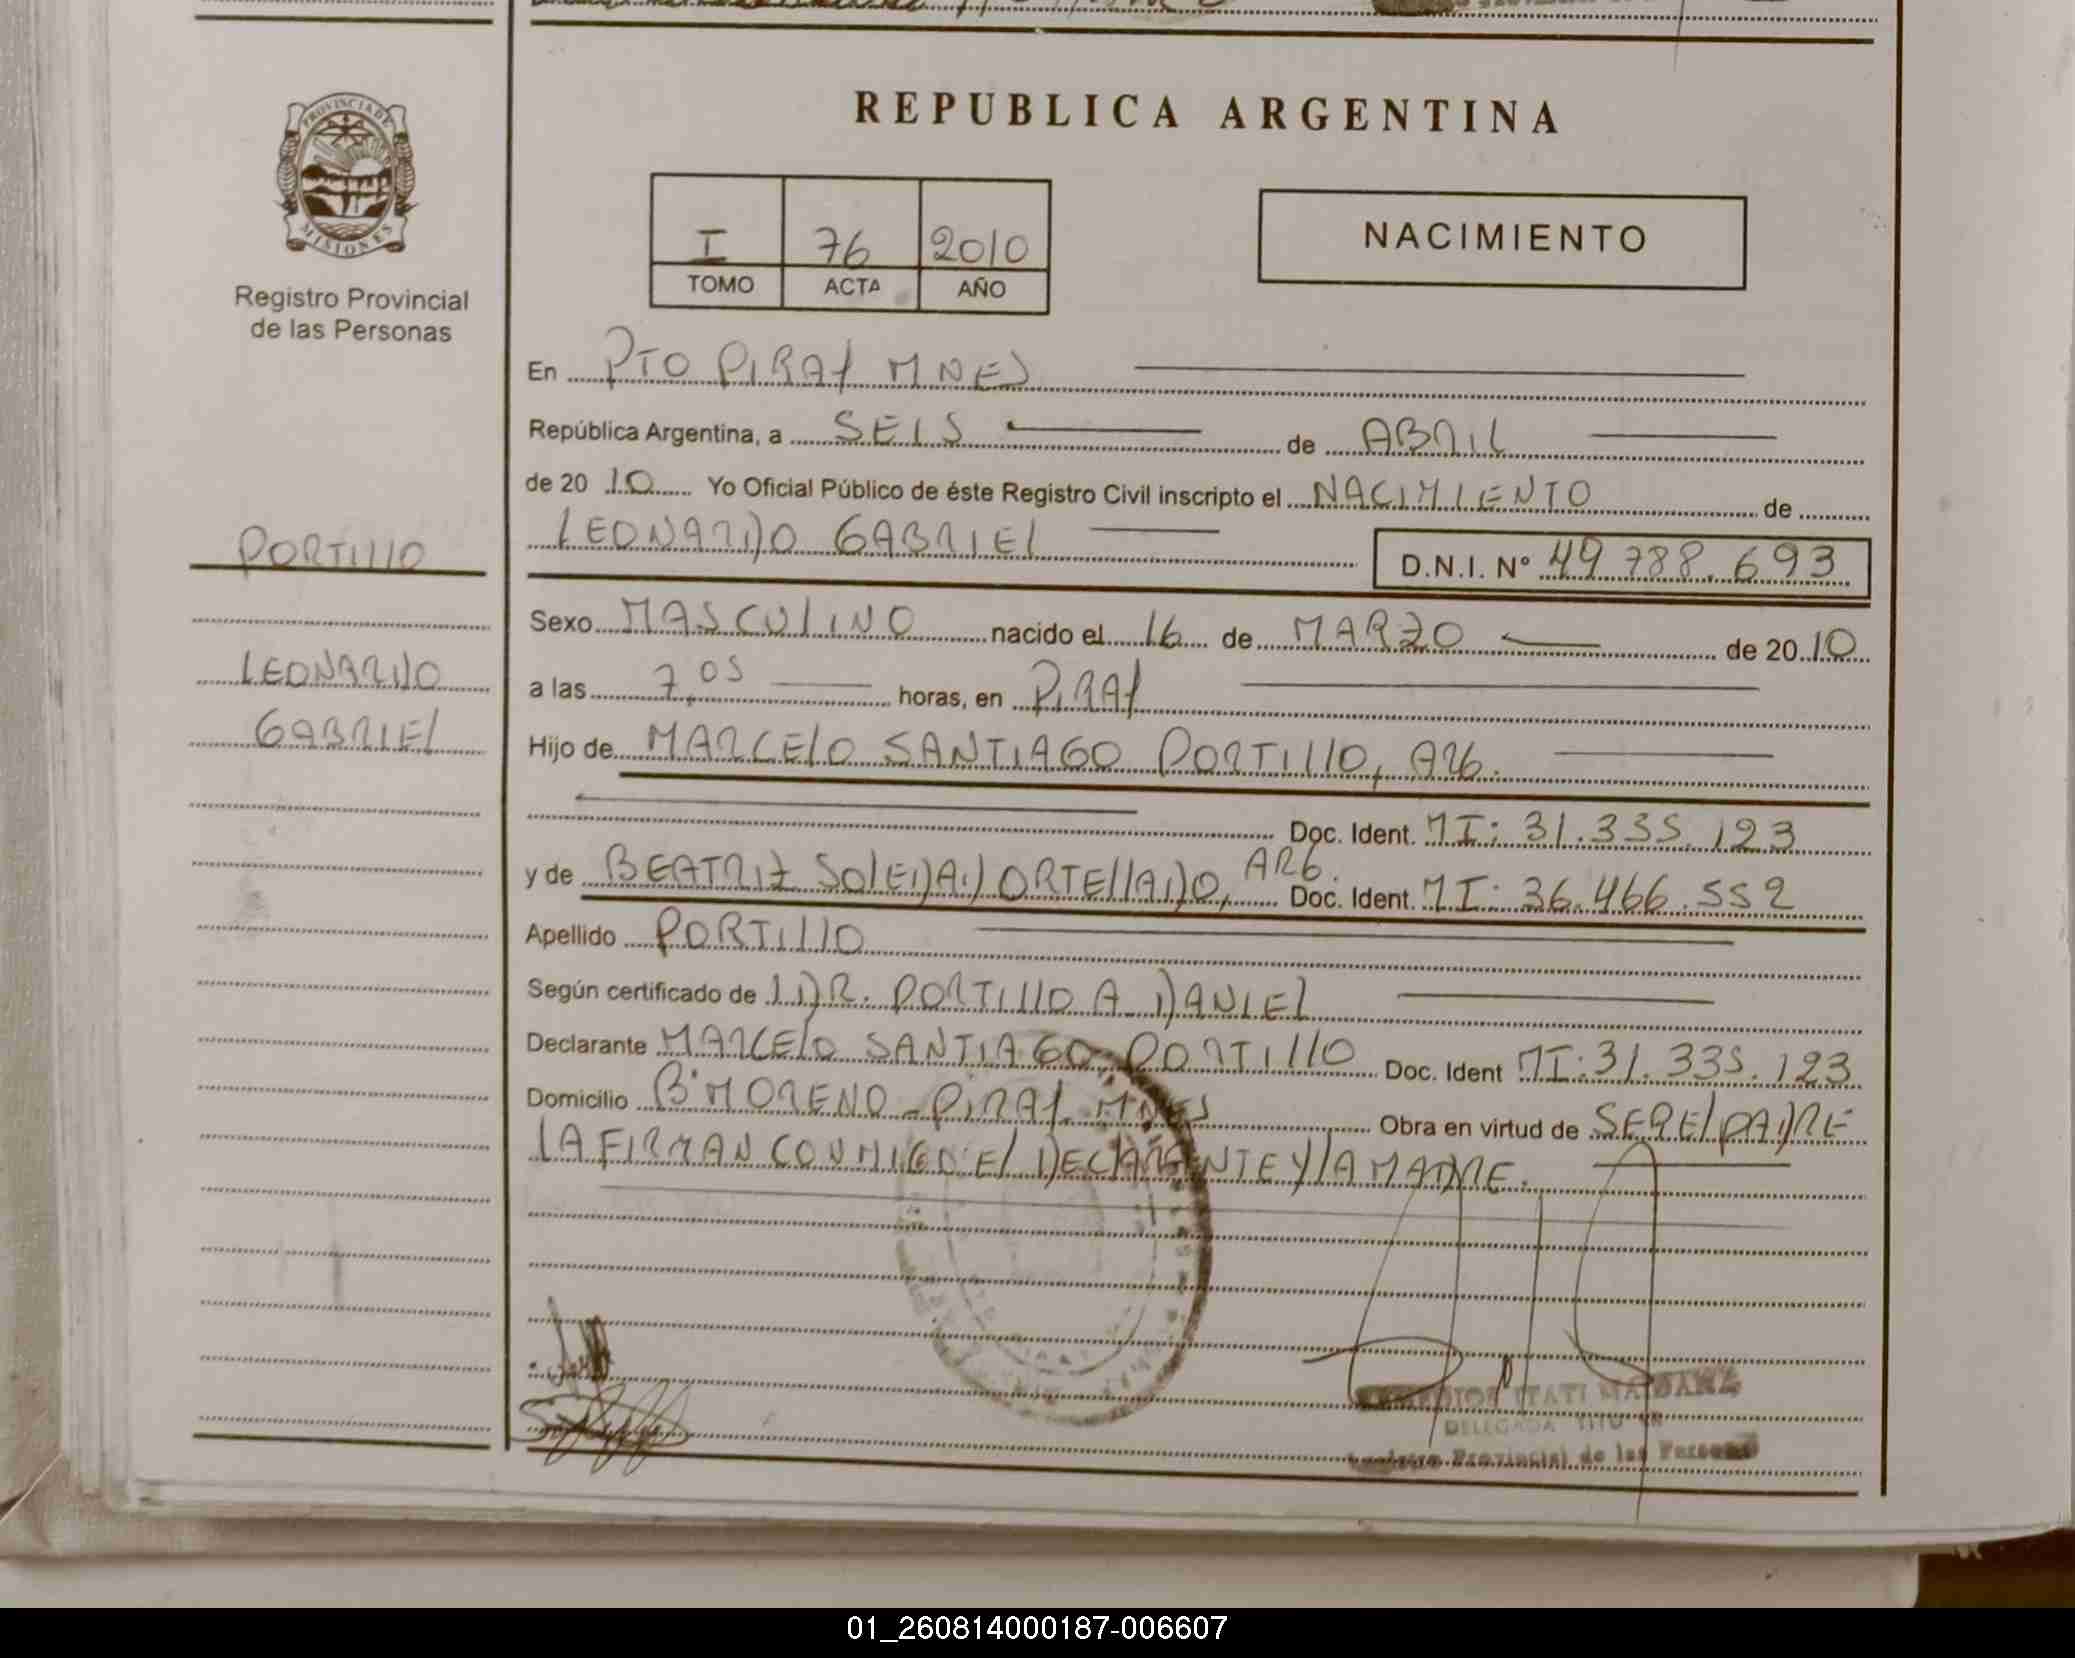 REPUBLICA ARGENTINA
PROVINCIA DE
MISIONES
Registro Provincial
de las Personas
I 76 2010
TOMO ACTA AÑO
NACIMIENTO
En PTO PIRAY MNES
República Argentina, a SEIS de ABRIL
de 20 10 Yo Oficial Público de éste Registro Civil inscripto el NACIMIENTO de
LEONARDO GABRIEL D.N.I. Nº 49.788.693
PORTILLO
LEONARDO
GABRIEL
Sexo MASCULINO nacido el 16 de MARZO de 20 10
a las 7,05 horas, en PIRAY
Hijo de MARCELO SANTIAGO PORTILLO, ARG.
Doc. Ident. MI: 31.335.123
y de BEATRIZ SOLEDAD ORTELLADO, ARG. Doc. Ident. MI: 36.466.552
Apellido PORTILLO
Según certificado de DR. PORTILLO A DANIEL
Declarante MARCELO SANTIAGO PORTILLO Doc. Ident MI: 31.335.123
Domicilio Bº MORENO - PIRAY MNES Obra en virtud de SER EL PADRE
LA FIRMAN CONMIGO EL DECLARANTE Y LA MADRE.
ITATI
DELEGADA
Registro Provincial de las Personas
01_260814000187-006607